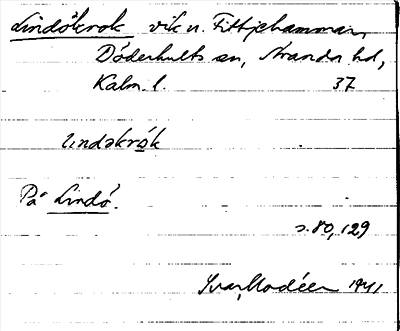 Lindökrok vik n. Fittjehammar,
Döderhults sn, Stranda hd,
Kalm. l. 37
lindəkrɷk
På Lindö.
s. 80, 129
Ivar Modéer 1941